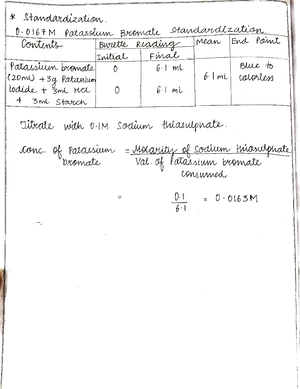 * Standardization.
0.0167 M Potassium Bromate Standardization.
Contents Burette Reading Mean End Point
Initial Final
Potassium bromate 0 6.1 mL 6.1 mL Blue to
(20mL) + 3g Potassium colorless
Iodide + 3mL HCl 0 6.1 mL
+ 3mL Starch
Titrate with 0.1M Sodium thiasulphate.
Conc. of Potassium = Molarity of Sodium thiasulphate
bromate Vol. of Potassium bromate
consumed
= 0.1 = 0.0163M
6.1